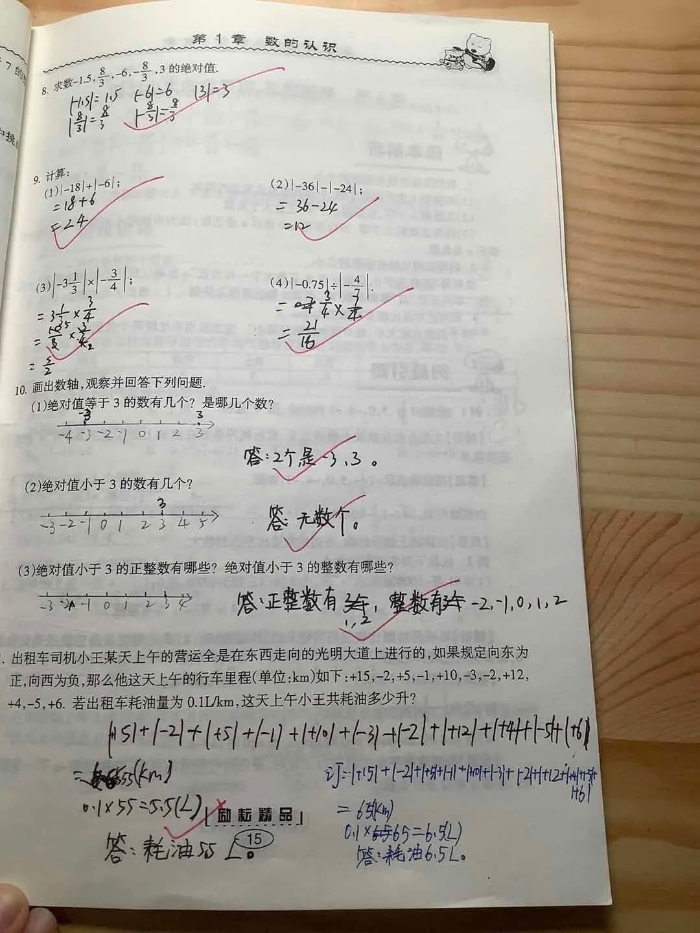 第1章 数的认识
8. 求数-1.5,8/3,-6,-8/3,3的绝对值.
|-1.5|=1.5 |-6|=6 |3|=3
|8/3|=8/3 |-8/3|=8/3
9. 计算:
(1)|-18|+|-6|; (2)|-36|-|-24|;
=18+6 = 36-24
=24 =12
(3)|-3 1/3|×|-3/4|; (4)|-0.75|÷|-4/7|.
=3 1/3×3/4 = 3/4×7/4
= 5/2 = 21/16
10. 画出数轴,观察并回答下列问题.
(1)绝对值等于3的数有几个? 是哪几个数?
-3 3
-4 -3 -2 -1 0 1 2 3
答:2个是-3,3。
(2)绝对值小于3的数有几个?
3
-3 -2 -1 0 1 2 3 4 5
答:无数个。
(3)绝对值小于3的正整数有哪些? 绝对值小于3的整数有哪些?
-3 -2 -1 0 1 2 3 4
答:正整数有 1,2, 整数有 -2,-1,0,1,2
. 出租车司机小王某天上午的营运全是在东西走向的光明大道上进行的,如果规定向东为
正,向西为负,那么他这天上午的行车里程(单位:km)如下:+15,-2,+5,-1,+10,-3,-2,+12,
+4,-5,+6. 若出租车耗油量为0.1L/km,这天上午小王共耗油多少升?
|15|+|-2|+|+5|+|-1|+|+10|+|-3|+|-2|+|+12|+|+4|+|-5|+|+6|
=55(km)
0.1×55=5.5(L)
答:耗油55L。
订=|+15|+|-2|+|+5|+|-1|+|+10|+|-3|+|-2|+|+12|+|+4|+|-5|+
|+6|
=65(km)
0.1×65=6.5(L)
答:耗油6.5L。
励耘精品
15